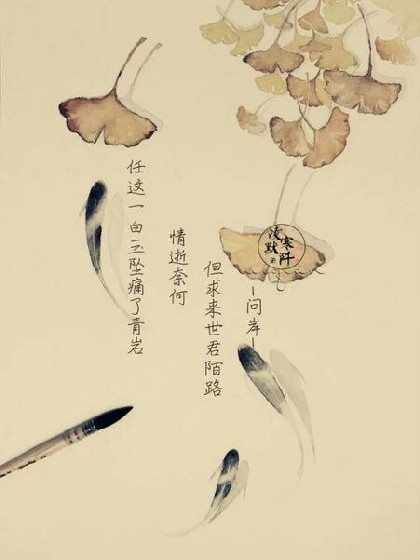 -问岸-
但求来世君陌路
情逝奈何
任这一白玉坠痛了青岩